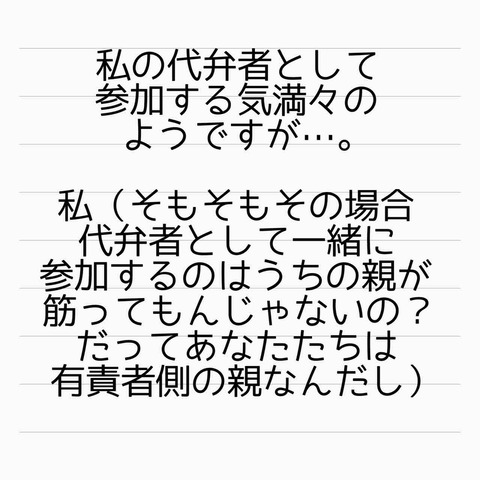 私の代弁者として
参加する気満々の
ようですが…。
私（そもそもその場合
代弁者として一緒に
参加するのはうちの親が
筋ってもんじゃないの？
だってあなたたちは
有責者側の親なんだし）